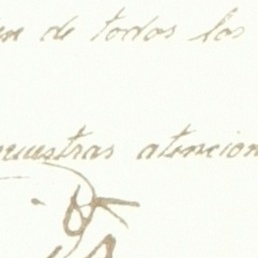 en de todos los
nuestras atencion